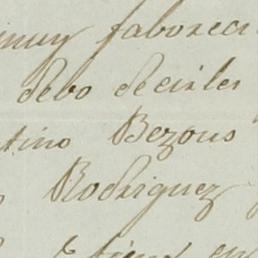 muy faboreci
debo decirles
tino Bezous
Rodriguez